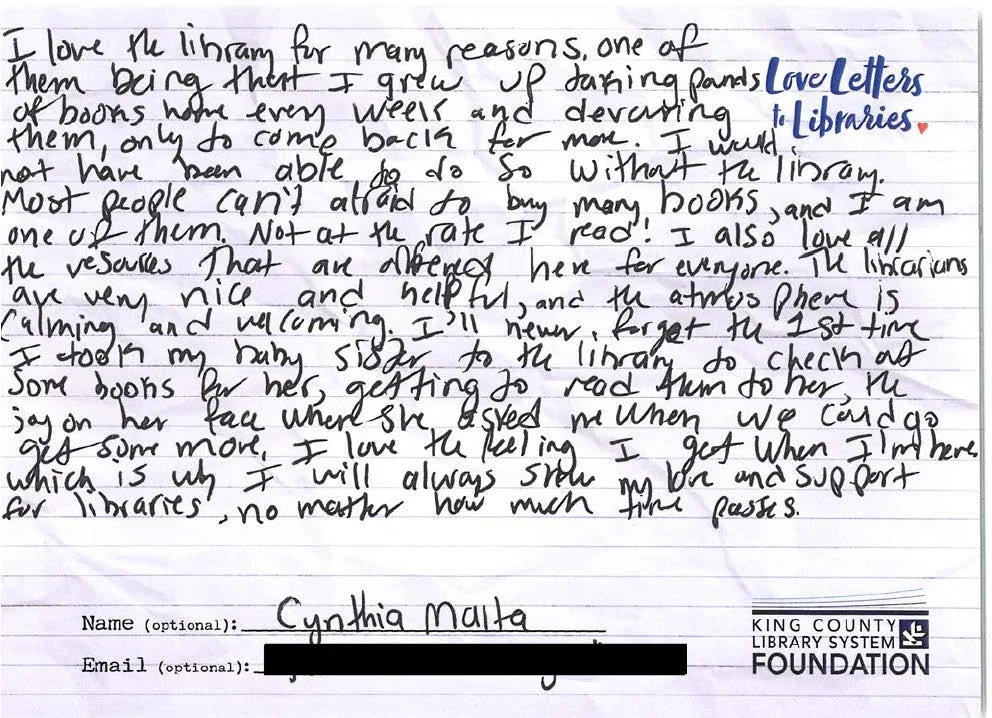 I love the library for many reasons, one of
them being that I grew up taking pounds
of books home every week and devouring
them, only to come back for more. I would
not have been able to do so without the library.
Most people can't afraid to buy many books, and I am
one of them. Not at the rate I read! I also love all
the resources that are offered here for everyone. The librarians
are very nice and helpful, and the atmosphere is
calming and welcoming. I'll never forget the 1st time
I took my baby sister to the library to check out
some books for her, getting to read them to her, the
joy on her face when she asked me when we could go
get some more. I love the feeling I get when I'm here,
which is why I will always show my love and support
for libraries, no matter how much time passes.
Love Letters
to Libraries.
Name (optional): Cynthia Malta
Email (optional):
KING COUNTY
LIBRARY SYSTEM
FOUNDATION